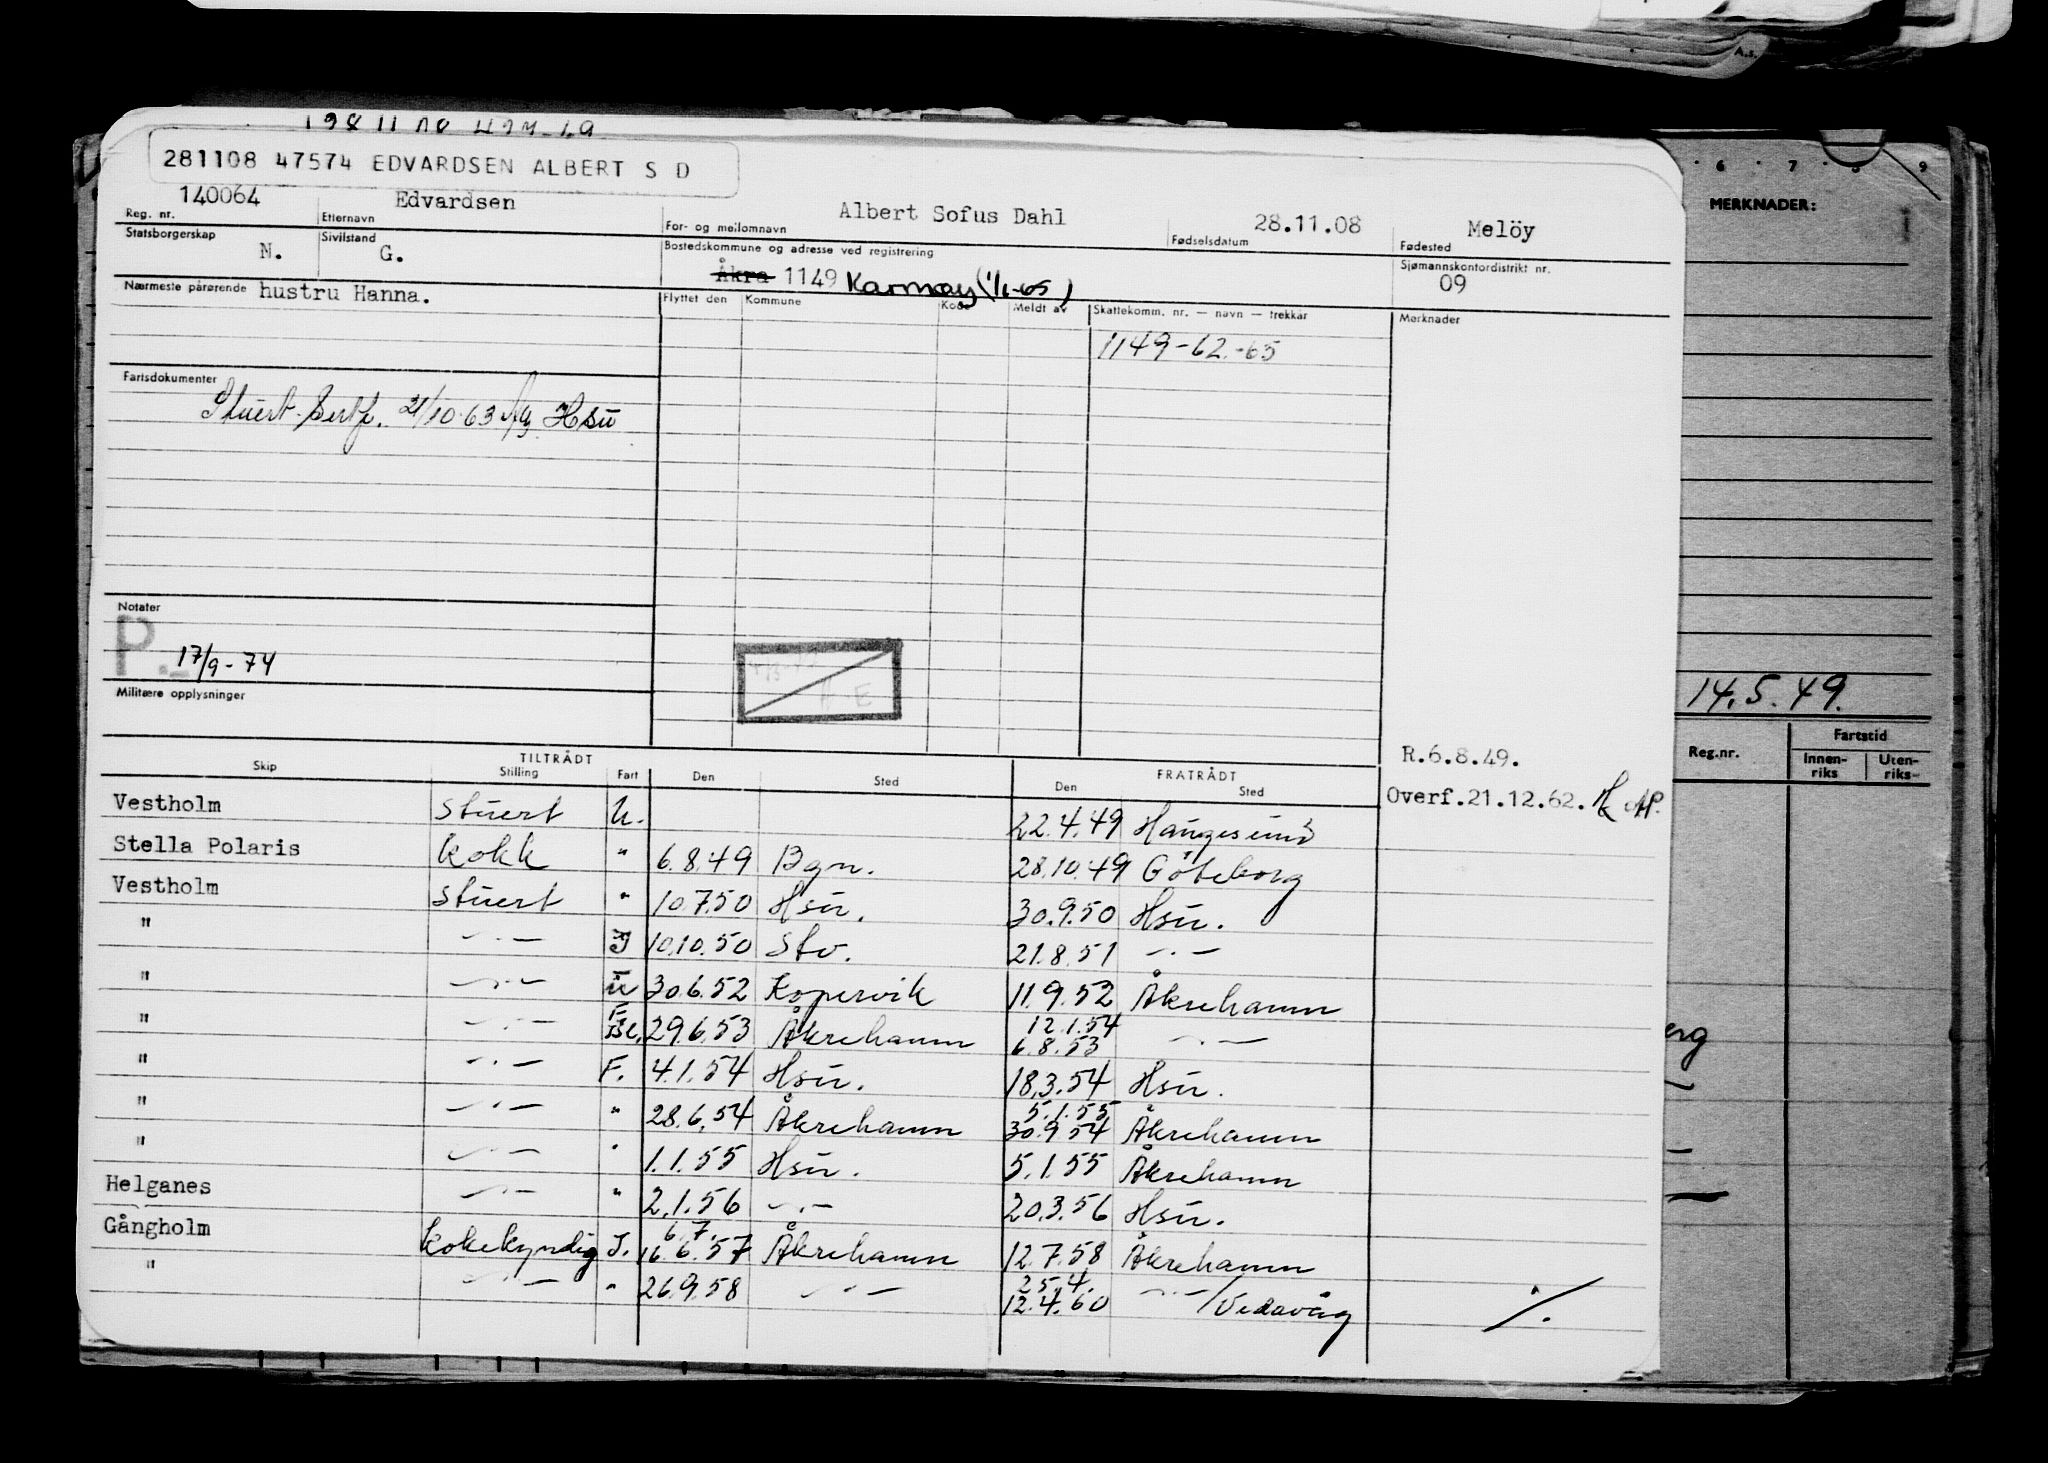 A.s.
281108 47574 EDVARDSEN ALBERT S D
140064 Edvardsen Albert Sofus Dahl 28.11.08 Melöy
Reg. nr. Etternavn For- og mellomnavn Fødselsdatum Fødested
Statsborgerskap N. Sivilstand G. Bostedskommune og adresse ved registrering Sjømannskontordistrikt nr.
Åkra 1149 Karmøy (1/1-65) 09
Nærmeste pårørende hustru Hanna. Flyttet den Kommune Kode Meldt av Skattekomm. nr. — navn — trekkår Merknader
1149-62-65
Fartsdokumenter
Stuert. Sertf. 21/10-63 Hsu
Notater
P. 17/9-74
Militære opplysninger
E
R.6.8.49.
Overf.21.12.62.
TILTRÅDT FRATRÅDT
Skip Stilling Fart Den Sted Den Sted
Vestholm Stuert U. 22.4.49 Haugesund
Stella Polaris Kokk " 6.8.49 Bgn. 28.10.49 Göteborg
Vestholm Stuert " 10.7.50 Hsu. 30.9.50 Hsu.
" —"— 10.10.50 Stv. 21.8.51 —"—
" —"— 30.6.52 Kopervik 11.9.52 Åkrehamn
12.1.54
" —"— 29.6.53 Åkrehamn 6.8.53 —"—
" —"— F. 4.1.54 Hsu. 18.3.54 Hsu.
5.1.55
" —"— " 28.6.54 Åkrehamn 30.9.54 Åkrehamn
" —"— " 1.1.55 Hsu. 5.1.55 Åkrehamn
Helganes —"— " 2.1.56 —"— 20.3.56 Hsu.
6.7.
Gångholm Kokekyndig I. 16.6.57 Åkrehamn 12.7.58 Åkrehamn
25.4.
" —"— " 26.9.58 —"— 12.4.60 —"—/Vedavåg
./.
6 7 8 9
MERKNADER:
14.5.49.
Reg.nr. Fartstid
Innenriks Utenriks
erg